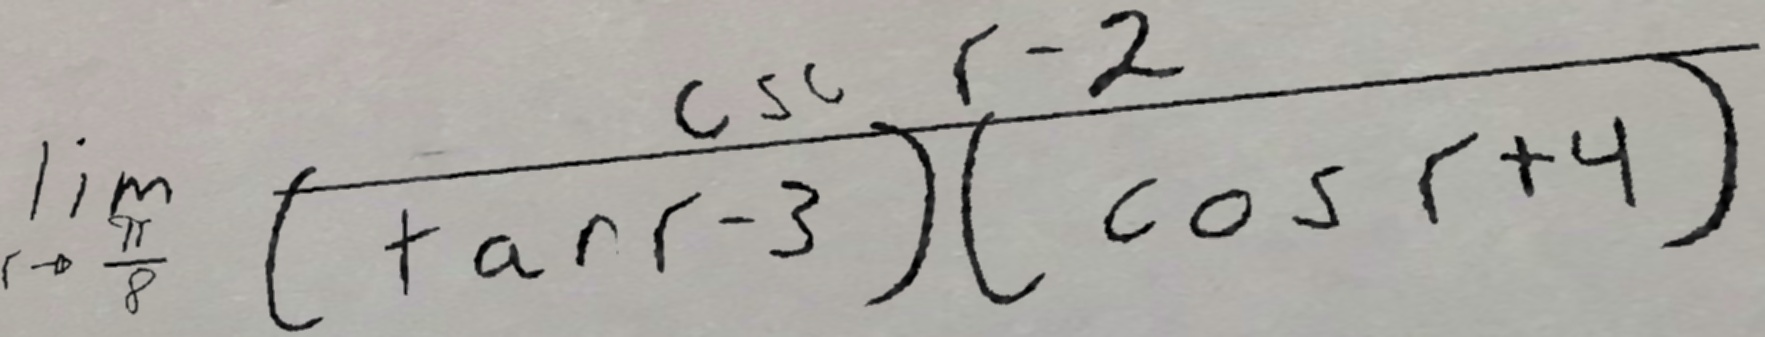 \lim_{r \to \frac{\pi}{8}} \frac{\csc r - 2}{(\tan r - 3)(\cos r + 4)}